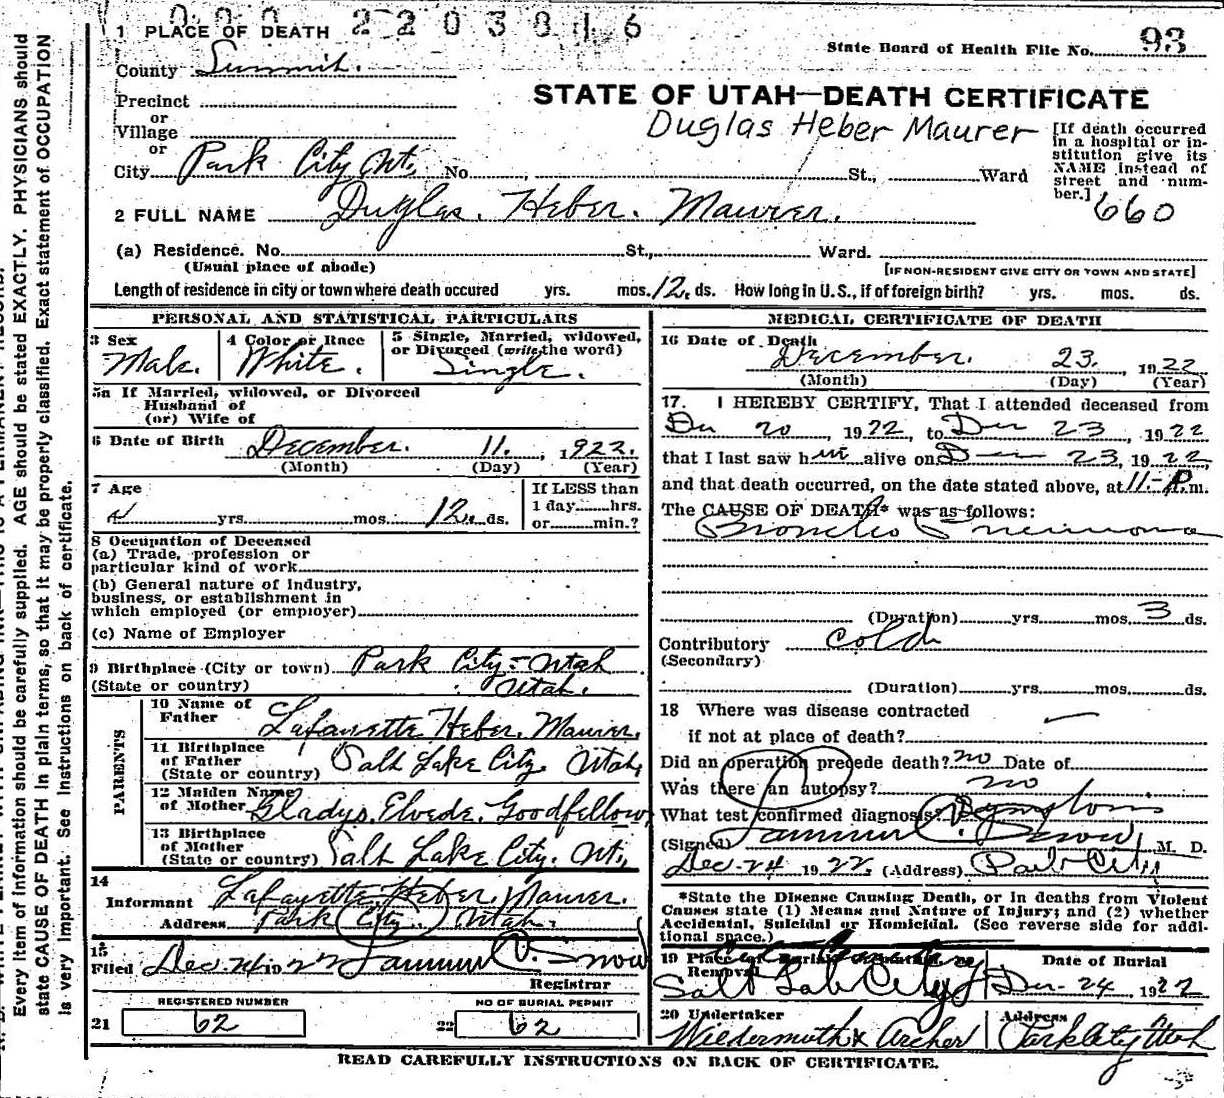 000 2203816
1 PLACE OF DEATH
State Board of Health File No. 93
County Summit.
STATE OF UTAH—DEATH CERTIFICATE
Precinct
or
Village
or
Duglas Heber Maurer
[If death occurred in a hospital or institution give its NAME instead of street and number.]
660
City Park City Ut. No. St., Ward
2 FULL NAME Duglas. Heber. Maurer.
(a) Residence. No. St., Ward.
(Usual place of abode)
[IF NON-RESIDENT GIVE CITY OR TOWN AND STATE]
Length of residence in city or town where death occured yrs. mos. 12. ds. How long in U.S., if of foreign birth? yrs. mos. ds.
PERSONAL AND STATISTICAL PARTICULARS
3 Sex
Male.
4 Color or Race
White.
5 Single, Married, widowed,
or Divorced (write the word)
Single.
5a If Married, widowed, or Divorced
Husband of
(or) Wife of
6 Date of Birth December. 11. , 1922.
(Month) (Day) (Year)
7 Age
yrs. mos. 12. ds.
If LESS than
1 day hrs.
or min.?
8 Occupation of Deceased
(a) Trade, profession or
particular kind of work
(b) General nature of industry,
business, or establishment in
which employed (or employer)
(c) Name of Employer
9 Birthplace (City or town) Park City - Utah
(State or country) Utah.
PARENTS
10 Name of
Father Lafayette Heber. Maurer.
11 Birthplace
of Father Salt Lake City. Utah,
(State or country)
12 Maiden Name
of Mother Gladys. Elvede. Goodfellow,
13 Birthplace
of Mother
(State or country) Salt Lake City. Ut.
14
Informant Lafayette Heber. Maurer.
Address Park City. Utah.
15
Filed Dec 24 1922 V. Snow
Registrar
REGISTERED NUMBER
21 62
NO OF BURIAL PERMIT
22 62
MEDICAL CERTIFICATE OF DEATH
16 Date of Death
December. 23. 1922
(Month) (Day) (Year)
17. I HEREBY CERTIFY, That I attended deceased from
Dec 20, 1922, to Dec 23, 1922
that I last saw him alive on Dec 23, 1922,
and that death occurred, on the date stated above, at 11- P.m.
The CAUSE OF DEATH* was as follows:
Broncho Pneumona
(Duration) yrs. mos. 3 ds.
Contributory cold
(Secondary)
(Duration) yrs. mos. ds.
18 Where was disease contracted
if not at place of death?
Did an operation precede death? no Date of
Was there an autopsy? no
What test confirmed diagnosis? Symptoms
(Signed) V. Snow M. D.
Dec-24 1922. (Address) Park City
*State the Disease Causing Death, or in deaths from Violent
Causes state (1) Means and Nature of Injury; and (2) whether
Accidental, Suicidal or Homicidal. (See reverse side for addi-
tional space.)
19 Place of Burial, Cremation, or
Removal
Salt Lake City
Date of Burial
Dec-24, 1922
20 Undertaker
Wiedermuth & Archer
Address
Park City Utah
READ CAREFULLY INSTRUCTIONS ON BACK OF CERTIFICATE.
Every item of information should be carefully supplied. AGE should be stated EXACTLY. PHYSICIANS should
state CAUSE OF DEATH in plain terms, so that it may be properly classified. Exact statement of OCCUPATION
is very important. See instructions on back of certificate.